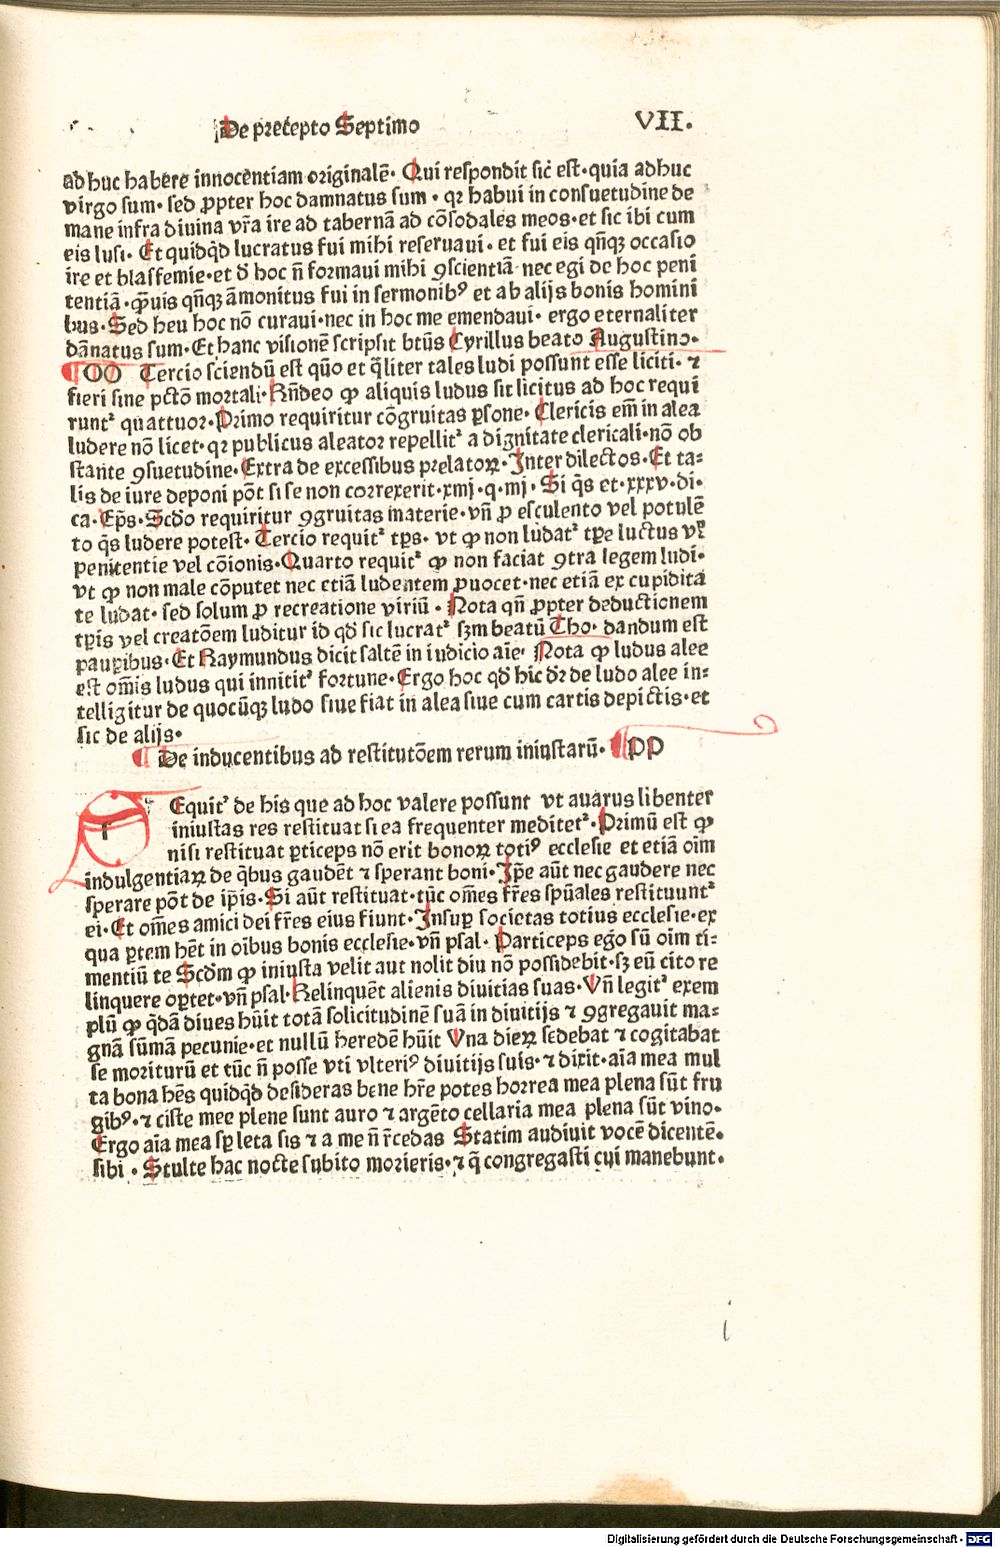 De precepto Septimo VII.
ad huc habere innocentiam originalē· Qui respondit sic̄ est·quia adhuc
virgo sum· sed ꝓpter hoc damnatus sum · qꝛ habui in consuetudine de
mane infra diuina vr̄a ire ad tabernā ad cōsodales meos·et sic ibi cum
eis lusi· Et quidqd̄ lucratus fui mihi reseruaui· et fui eis qn̄qꝫ occasio
ire et blasfemie·et ꝺ̄ hoc n̄ formaui mihi ꝯscientiā·nec egi de hoc peni
tentiā·q̄uis qn̄qꝫ āmonitus fui in sermonibꝰ et ab alijs bonis homini
bus·Sed heu hoc nō curaui·nec in hoc me emendaui· ergo eternaliter
dānatus sum·Et hanc visionē scripsit btūs Cyrillus beato Augustino·
¶ OO Tercio sciendū est qūo et q̄liter tales ludi possunt esse liciti· ⁊
fieri sine pctō mortali·Rn̄deo ꝙ aliquis ludus sit licitus ad hoc requi
runtᷣ quattuor·Primo requiritur cōgruitas ꝑsone· Clericis em̄ in alea
ludere nō licet·qꝛ publicus aleator repellitᷣ a dignitate clericali·nō ob
stante ꝯsuetudine·Extra de excessibus prelatoꝝ·Inter dilectos·Et ta⸗
lis de iure deponi pōt si se non correxerit·xmj·q·mj· Si q̄s et·xxxv·di·
ca·Ep̄s·Scdo requiritur ꝯgruitas materie·vn̄ ꝓ esculento vel potulē
to q̄s ludere potest· Tercio requitᷣ tp̄s· vt ꝙ non ludatᷣ tꝑe luctus vꝉ
penitentie vel cōionis·Quarto requitᷣ ꝙ non faciat ꝯtra legem ludi·
vt ꝙ non male cōputet nec etiā ludentem ꝓuocet·nec etiā ex cupidita
te ludat· sed solum ꝓ recreatione viriū · Nota qn̄ ꝓpter deductionem
tꝑis vel creatōem luditur id qd̄ sic lucratᷣ sꝫm beatū Tho· dandum est
pauꝑibus·Et Raymundus dicit saltē in iudicio aīe· Nota ꝙ ludus alee
est om̄is ludus qui innititᷣ fortune·Ergo hoc qd̄ hic dr̄ de ludo alee in⸗
telligitur de quocūqꝫ ludo siue fiat in alea siue cum cartis depictis·et
sic de alijs·
¶ De inducentibus ad restitutōem rerum iniustarū· ¶ PP
SEquitᷣ de his que ad hoc valere possunt vt auarus libenter
iniustas res restituat si ea frequenter meditetᷣ·Primū est ꝙ
nisi restituat ꝑticeps nō erit bonoꝝ totiꝰ ecclesie et etiā oīm
indulgentiaꝝ de q̄bus gaudēt ⁊ sperant boni·Ip̄e aūt nec gaudere nec
sperare pōt de ip̄is·Si aūt restituat·tūc om̄es fr̄es spūales restituuntᷣ
ei·Et om̄es amici dei fr̄es eius fiunt·Insuꝑ societas totius ecclesie·ex
qua ꝑtem hēt in oībus bonis ecclesie·vn̄ psal· Particeps ego sū oīm ti⸗
mentiū te Scdm ꝙ iniusta velit aut nolit diu nō possidebit·sꝫ eū cito re
linquere oꝑtet·vn̄ psal·Relinquēt alienis diuitias suas·Vn̄ legitᷣ exem
plū ꝙ q̄dā diues hūit totā solicitudinē suā in diuitijs ⁊ ꝯgregauit ma⸗
gnā sūmā pecunie·et nullū heredē hūit Vna dieꝝ sedebat ⁊ cogitabat
se moriturū et tūc n̄ posse vti vlteriꝰ diuitijs suis·⁊ dixit·aīa mea mul
ta bona hēs quidqd̄ desideras bene hr̄e potes horrea mea plena sūt fru
gibꝰ·⁊ ciste mee plene sunt auro ⁊ argēto cellaria mea plena sūt vino·
Ergo aīa mea sꝑ leta sis ⁊ a me n̄ r̄cedas Statim audiuit vocē dicentē·
sibi · Stulte hac nocte subito morieris·⁊ q̄ congregasti cui manebunt·
i
Digitalisierung gefördert durch die Deutsche Forschungsgemeinschaft - DFG